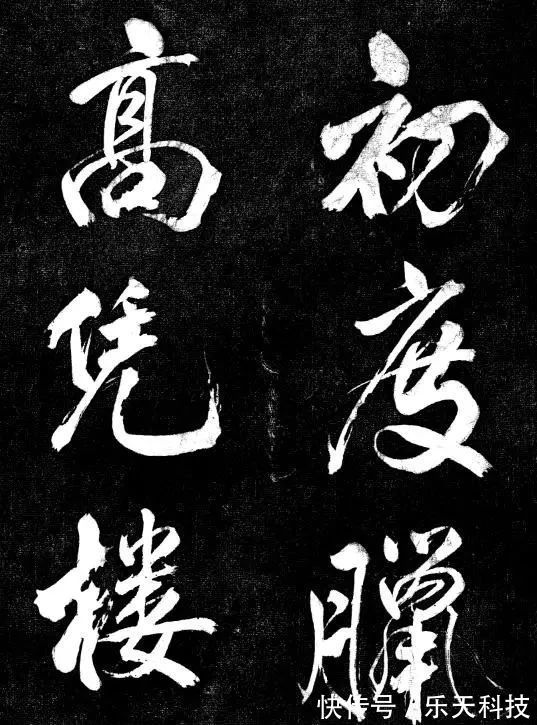 初度臘
高凭楼
快传号/乐天科技